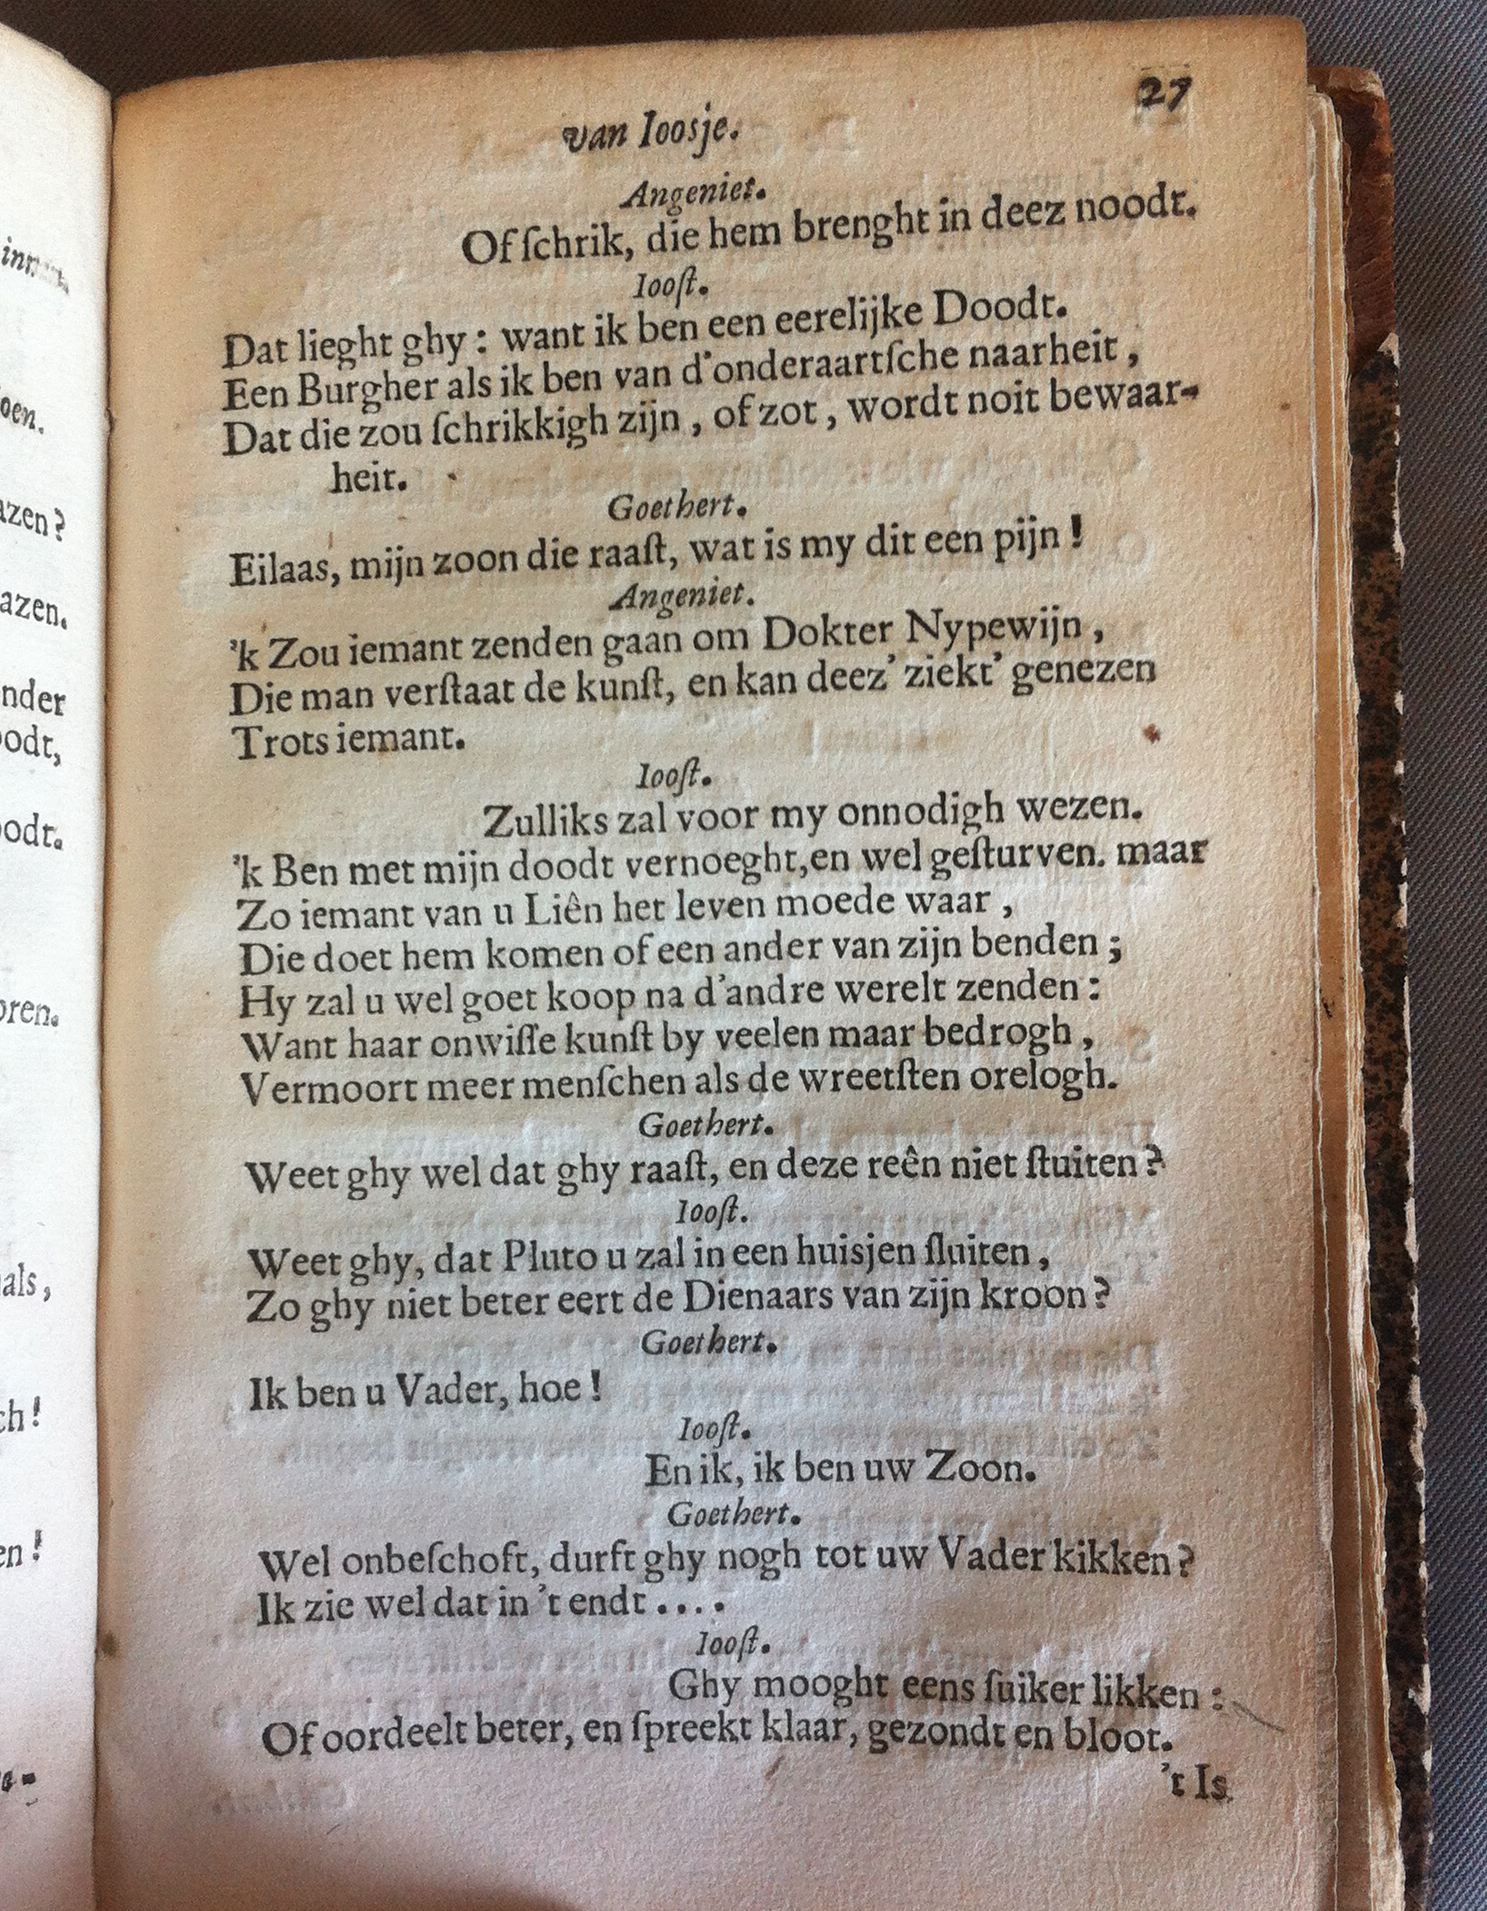 27
van Ioosje.
Angeniet.
Of ſchrik, die hem brenght in deez noodt.
Iooſt.
Dat lieght ghy: want ik ben een eerelijke Doodt.
Een Burgher als ik ben van d'onderaartſche naarheit,
Dat die zou ſchrikkigh zijn, of zot, wordt noit bewaar-
heit.
Goethert.
Eilaas, mijn zoon die raaſt, wat is my dit een pijn!
Angeniet.
'k Zou iemant zenden gaan om Dokter Nypewijn,
Die man verſtaat de kunſt, en kan deez' ziekt' genezen
Trots iemant.
Iooſt.
Zulliks zal voor my onnodigh wezen.
'k Ben met mijn doodt vernoeght, en wel geſturven. maar
Zo iemant van u Liên het leven moede waar,
Die doet hem komen of een ander van zijn benden;
Hy zal u wel goet koop na d'andre werelt zenden:
Want haar onwiſſe kunſt by veelen maar bedrogh,
Vermoort meer menſchen als de wreetſten orelogh.
Goethert.
Weet ghy wel dat ghy raaſt, en deze reên niet ſtuiten?
Iooſt.
Weet ghy, dat Pluto u zal in een huisjen ſluiten,
Zo ghy niet beter eert de Dienaars van zijn kroon?
Goethert.
Ik ben u Vader, hoe!
Iooſt.
En ik, ik ben uw Zoon.
Goethert.
Wel onbeſchoft, durft ghy nogh tot uw Vader kikken?
Ik zie wel dat in 't endt....
Iooſt.
Ghy mooght eens ſuiker likken:
Of oordeelt beter, en ſpreekt klaar, gezondt en bloot.
't Is